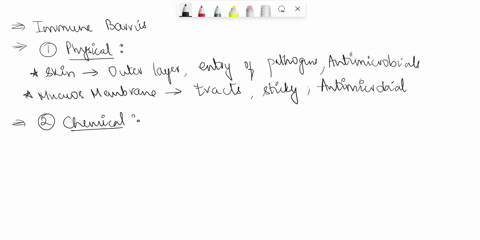 ⇒ Immune Barris
→ ① Physical :
★ Skin → Outer layer, entry of pathogens, Antimicrobials
★ Mucuos Membrane → tracts, sticky, Antimicrobial
⇒ ② Chemical :